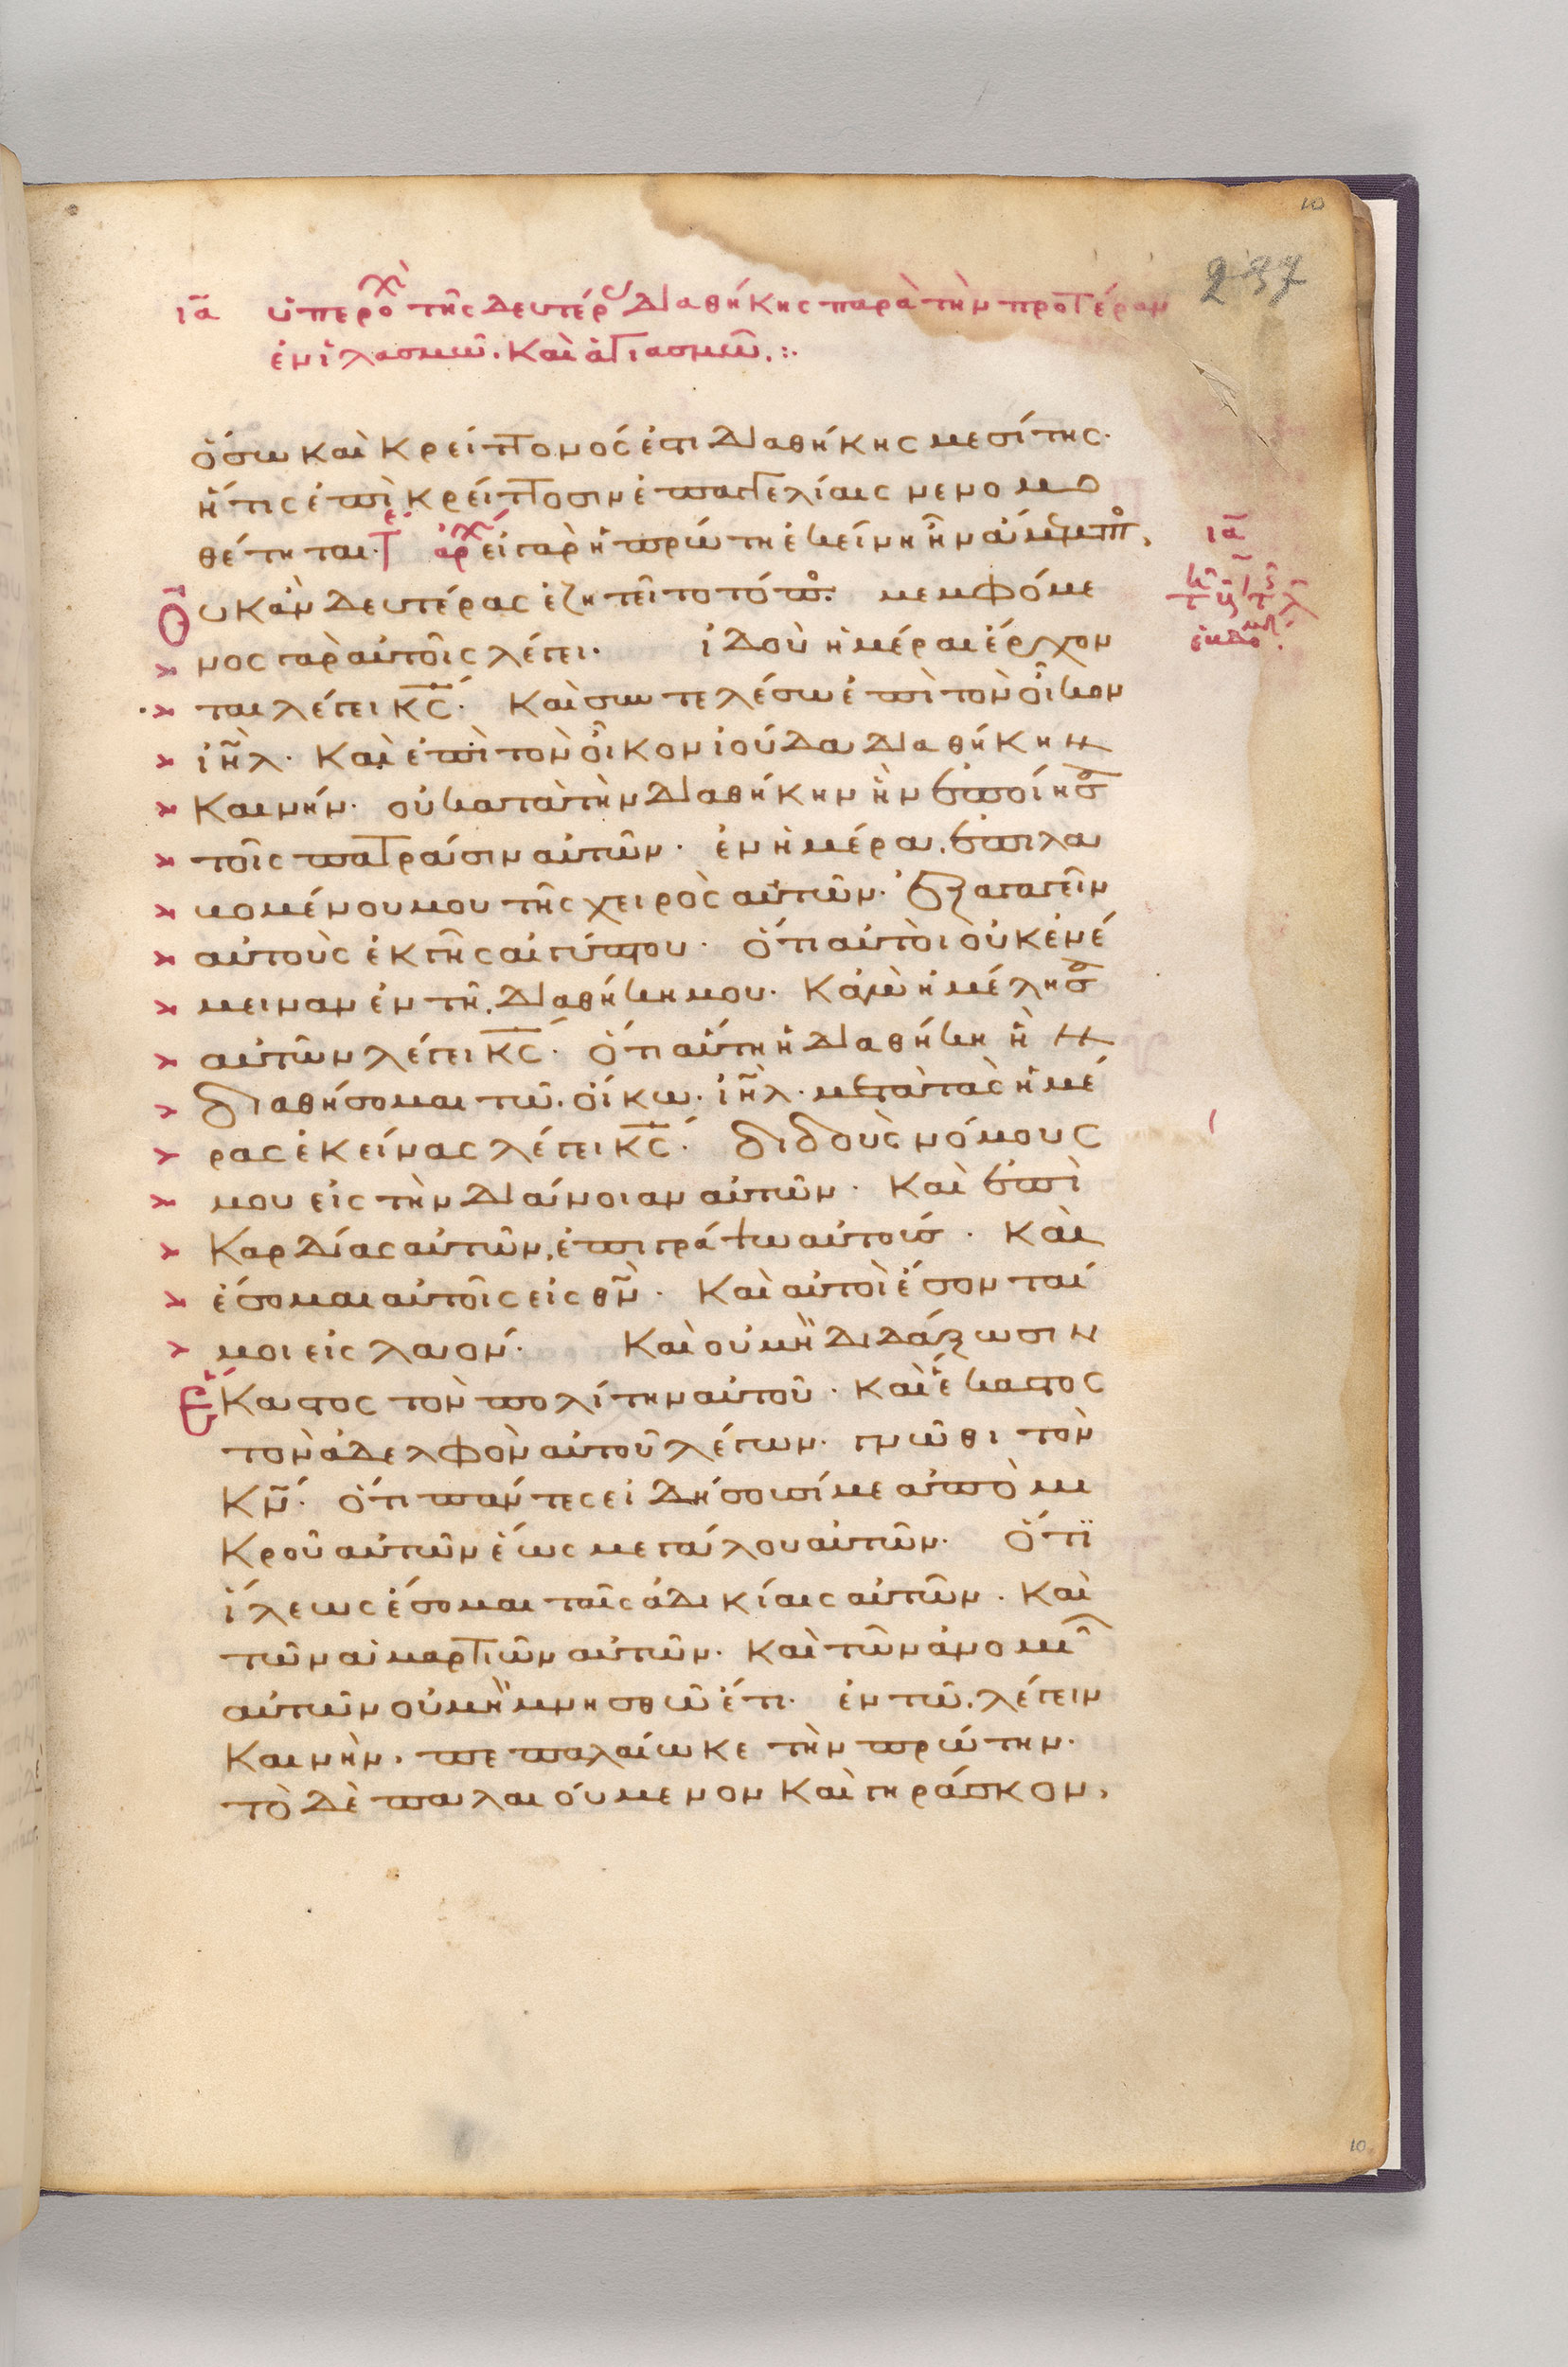 10
237
ια ὑπεροχὴ τῆς δευτέρας διαθήκης παρὰ τὴν προτέραν
ἐν ἱλασμῶ. καὶ ἁγιασμῶ.:.
ὅσω καὶ κρείττονός ἐστι διαθήκης μεσίτης·
ἥτις ἐπὶ κρείττοσιν ἐπαγγελίαις νενομο
θέτηται· τε αρχ εἰ γὰρ ἡ πρώτη ἐκείνη ἦν ἄμεμπτος,
Οὐκ ἂν δευτέρας ἐζητεῖτο τόπος. μεμφόμε
νος γὰρ αὐτοῖς λέγει· ἰδοὺ ἡμέραι ἔρχον
ται λέγει κς· καὶ συντελέσω ἐπὶ τὸν οἶκον
ιηλ· καὶ ἐπὶ τὸν οἶκον ἰούδα διαθήκην
καινήν· οὐ κατὰ τὴν διαθήκην ἣν ἐποίησα
τοῖς πατράσιν αὐτῶν· ἐν ἡμέρα ἐπιλα
βομένου μου τῆς χειρὸς αὐτῶν· ἐξαγαγεῖν
αὐτοὺς ἐκ γῆς αἰγύπτου· ὅτι αὐτοὶ οὐκ ἐνέ
μειναν ἐν τῆ διαθήκη μου· κἀγὼ ἠμέλησα
αὐτῶν λέγει κς· ὅτι αὕτη ἡ διαθήκη ἣν
διαθήσομαι τῶ οἴκω ιηλ· μετὰ τὰς ἡμέ
ρας ἐκείνας λέγει κς· διδοὺς νόμους
μου εἰς τὴν διάνοιαν αὐτῶν· καὶ ἐπὶ
καρδίας αὐτῶν, ἐπιγράψω αὐτούς· καὶ
ἔσομαι αὐτοῖς εἰς θν· καὶ αὐτοὶ ἔσονταί
μοι εἰς λαόν· καὶ οὐ μὴ διδάξωσιν
Ἕκαστος τὸν πολίτην αὐτοῦ· καὶ ἕκαστος
τὸν ἀδελφὸν αὐτοῦ λέγων· γνῶθι τὸν
κν· ὅτι πάντες εἰδήσουσί με ἀπὸ μι
κροῦ αὐτῶν ἕως μεγάλου αὐτῶν· ὅτι
ἵλεως ἔσομαι ταῖς ἀδικίαις αὐτῶν· καὶ
τῶν ἁμαρτιῶν αὐτῶν· καὶ τῶν ἀνομιῶν
αὐτῶν οὐ μὴ μνησθῶ ἔτι· ἐν τῶ λέγειν
καινὴν· πεπαλαίωκε τὴν πρώτην·
τὸ δὲ παλαιούμενον καὶ γηράσκον,
ια
10